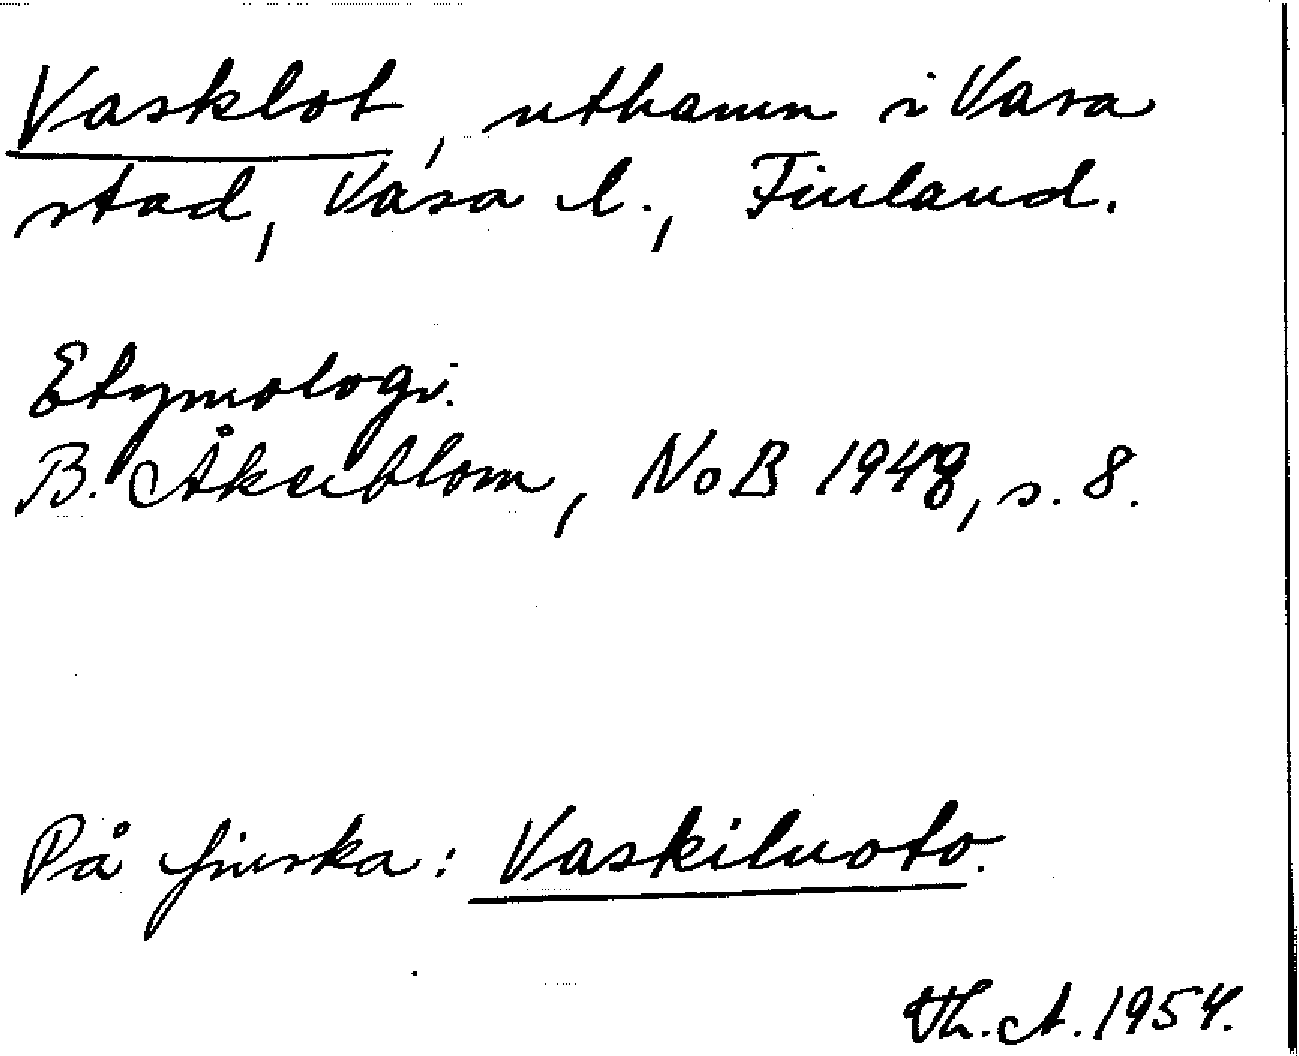 Vasklot, uthamn i Vasa
stad, Vasa l., Finland.
Etymologi.
B. Åkerblom, NoB 1948, s. 8.
På finska: Vaskiluoto.
Th. A. 1954.